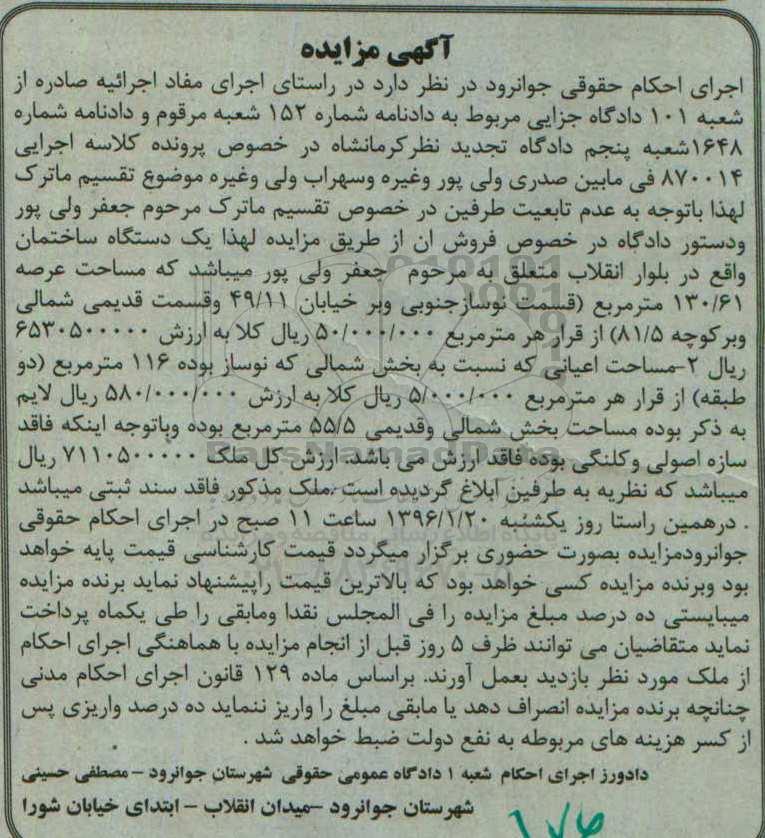 آگهی مزایده
اجرای احکام حقوقی جوانرود در نظر دارد در راستای اجرای مفاد اجرائیه صادره از
شعبه ۱۰۱ دادگاه جزایی مربوط به دادنامه شماره ۱۵۲ شعبه مرقوم و دادنامه شماره
۱۶۴۸شعبه پنجم دادگاه تجدید نظرکرمانشاه در خصوص پرونده کلاسه اجرایی
۸۷۰۰۱۴ فی مابین صدری ولی پور وغیره وسهراب ولی وغیره موضوع تقسیم ماترک
لهذا باتوجه به عدم تابعیت طرفین در خصوص تقسیم ماترک مرحوم جعفر ولی پور
ودستور دادگاه در خصوص فروش ان از طریق مزایده لهذا یک دستگاه ساختمان
واقع در بلوار انقلاب متعلق به مرحوم جعفر ولی پور میباشد که مساحت عرصه
۱۳۰/۶۱ مترمربع (قسمت نوسازجنوبی وبر خیابان ۴۹/۱۱ وقسمت قدیمی شمالی
وبرکوچه ۸۱/۵) از قرار هر مترمربع ۵۰/۰۰۰/۰۰۰ ریال کلا به ارزش ۶۵۳۰۵۰۰۰۰۰
ریال ۲-مساحت اعیانی که نسبت به بخش شمالی که نوساز بوده ۱۱۶ مترمربع (دو
طبقه) از قرار هر مترمربع ۵/۰۰۰/۰۰۰ ریال کلا به ارزش ۵۸۰/۰۰۰/۰۰۰ ریال لایم
به ذکر بوده مساحت بخش شمالی وقدیمی ۵۵/۵ مترمربع بوده وباتوجه اینکه فاقد
سازه اصولی وکلنگی بوده فاقد ارزش می باشد. ارزش کل ملک ۷۱۱۰۵۰۰۰۰۰ ریال
میباشد که نظریه به طرفین ابلاغ گردیده است .ملک مذکور فاقد سند ثبتی میباشد
. درهمین راستا روز یکشنبه ۱۳۹۶/۱/۲۰ ساعت ۱۱ صبح در اجرای احکام حقوقی
جوانرودمزایده بصورت حضوری برگزار میگردد قیمت کارشناسی قیمت پایه خواهد
بود وبرنده مزایده کسی خواهد بود که بالاترین قیمت راپیشنهاد نماید برنده مزایده
میبایستی ده درصد مبلغ مزایده را فی المجلس نقدا ومابقی را طی یکماه پرداخت
نماید متقاضیان می توانند ظرف ۵ روز قبل از انجام مزایده با هماهنگی اجرای احکام
از ملک مورد نظر بازدید بعمل آورند. براساس ماده ۱۲۹ قانون اجرای احکام مدنی
چنانچه برنده مزایده انصراف دهد یا مابقی مبلغ را واریز ننماید ده درصد واریزی پس
از کسر هزینه های مربوطه به نفع دولت ضبط خواهد شد .
دادورز اجرای احکام شعبه ۱ دادگاه عمومی حقوقی شهرستان جوانرود – مصطفی حسینی
شهرستان جوانرود –میدان انقلاب – ابتدای خیابان شورا
ParsNamadData